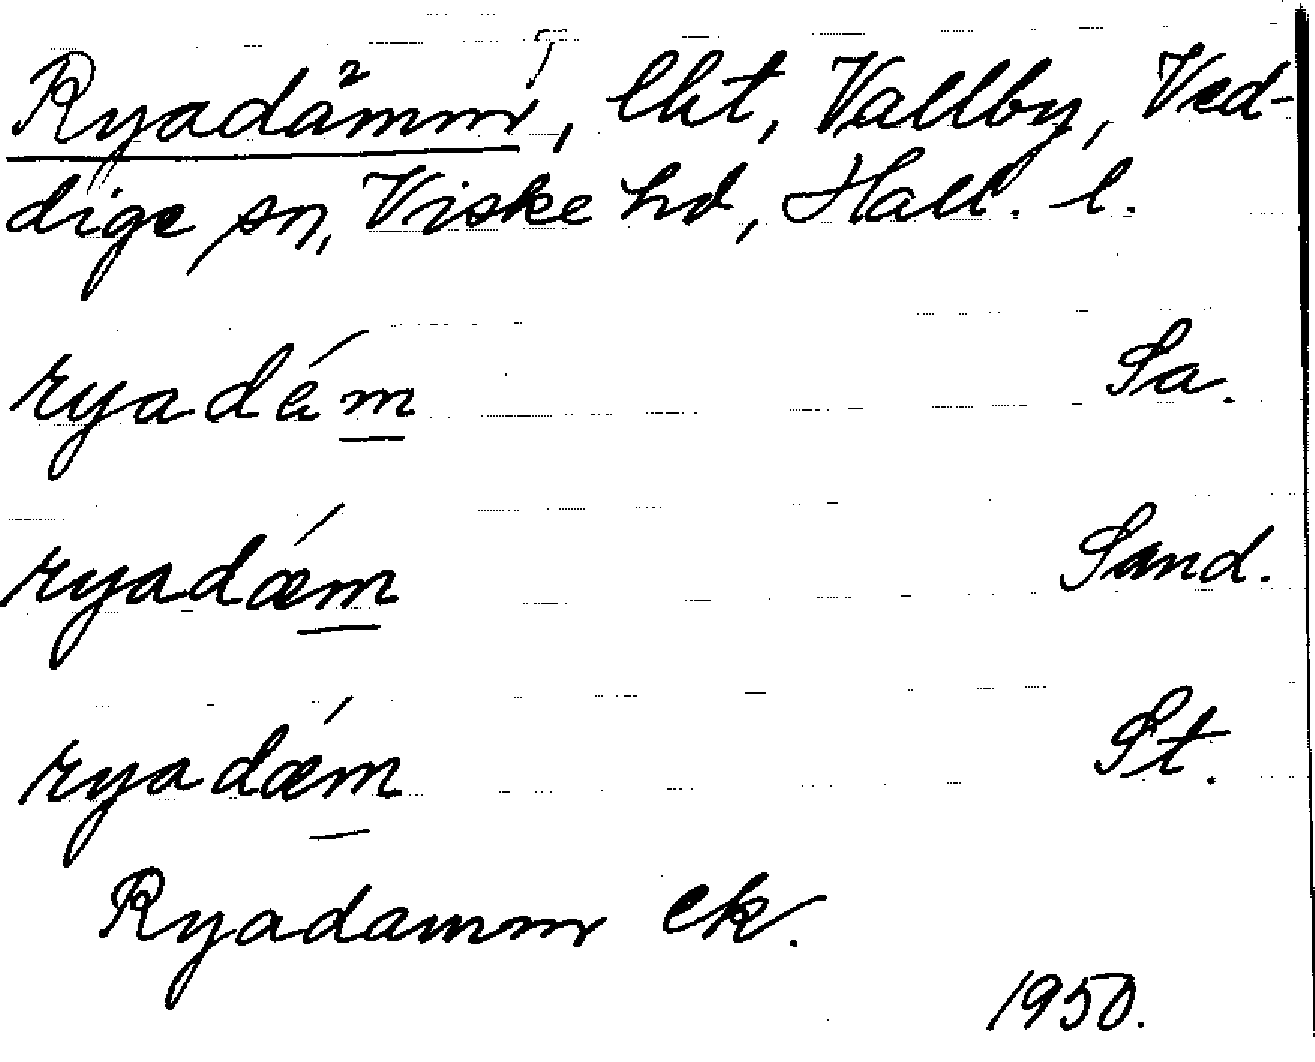 Ryadämm, lht, Vallby, Ved-
dige sn, Viske hd, Hall. l.
ryadém Sa.
ryadǽm Sand.
ryadǽm St.
Ryadamm ek.
1950.